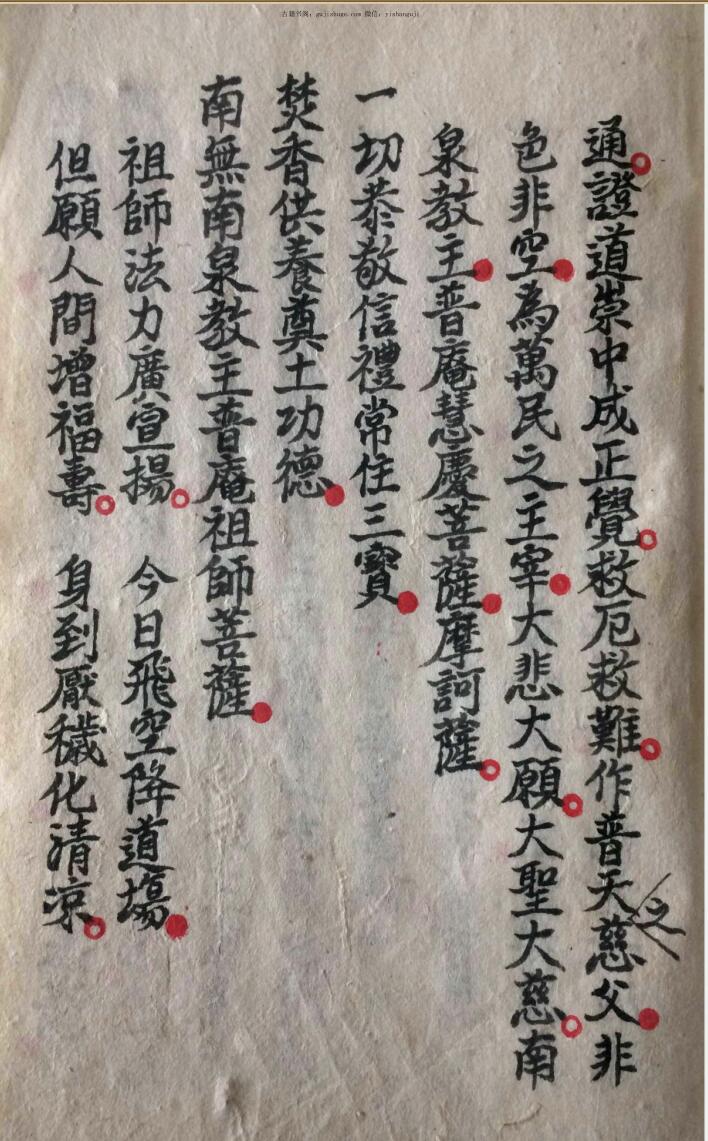 古籍书阁：gujishuge.com 微信：yishanguji
通證道崇中成正覺救厄救難作普天之慈父非
色非空為萬民之主宰大悲大願大聖大慈南
泉教主普庵慧慶菩薩摩訶薩
一切恭敬信禮常住三寶
焚香供養奠土功德
南無南泉教主普庵祖師菩薩
祖師法力廣宣揚 今日飛空降道場
但願人間增福壽 身到厭穢化清涼